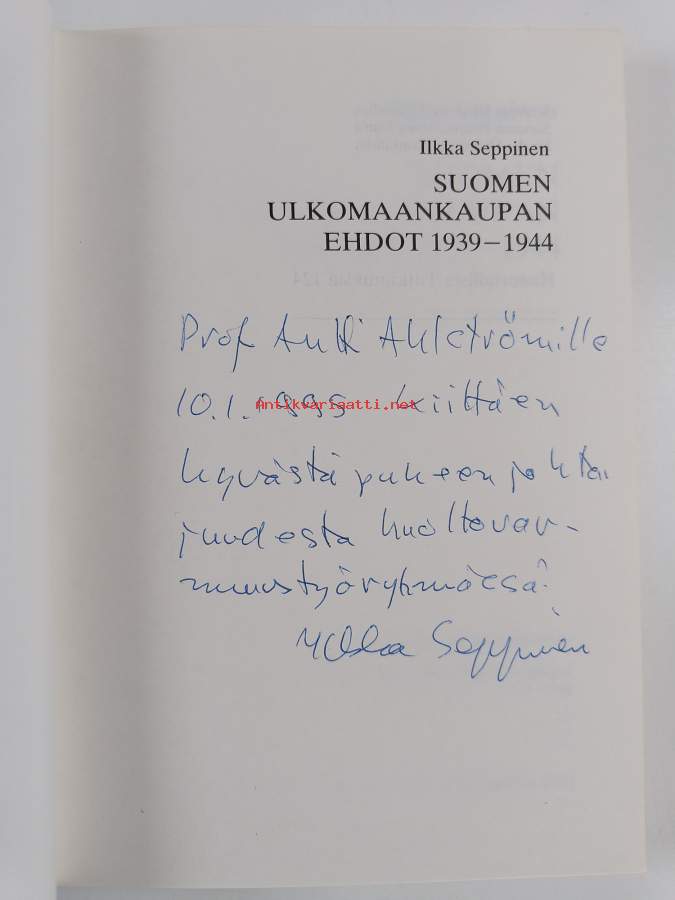 Ilkka Seppinen
SUOMEN
ULKOMAANKAUPAN
EHDOT 1939–1944
Prof Antti Ahlströmille
10.1.1995 kiittäen
hyvästä puheenjohta-
juudesta huoltovar-
muustyöryhmässä.
Ilkka Seppinen
antikvariaatti.net